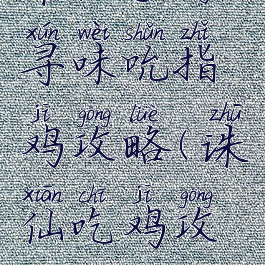 xún wèi shǔn zhǐ
寻味吮指
jī gōng lüè zhū
鸡攻略(诛
xiān chī jī gōng
仙吃鸡攻